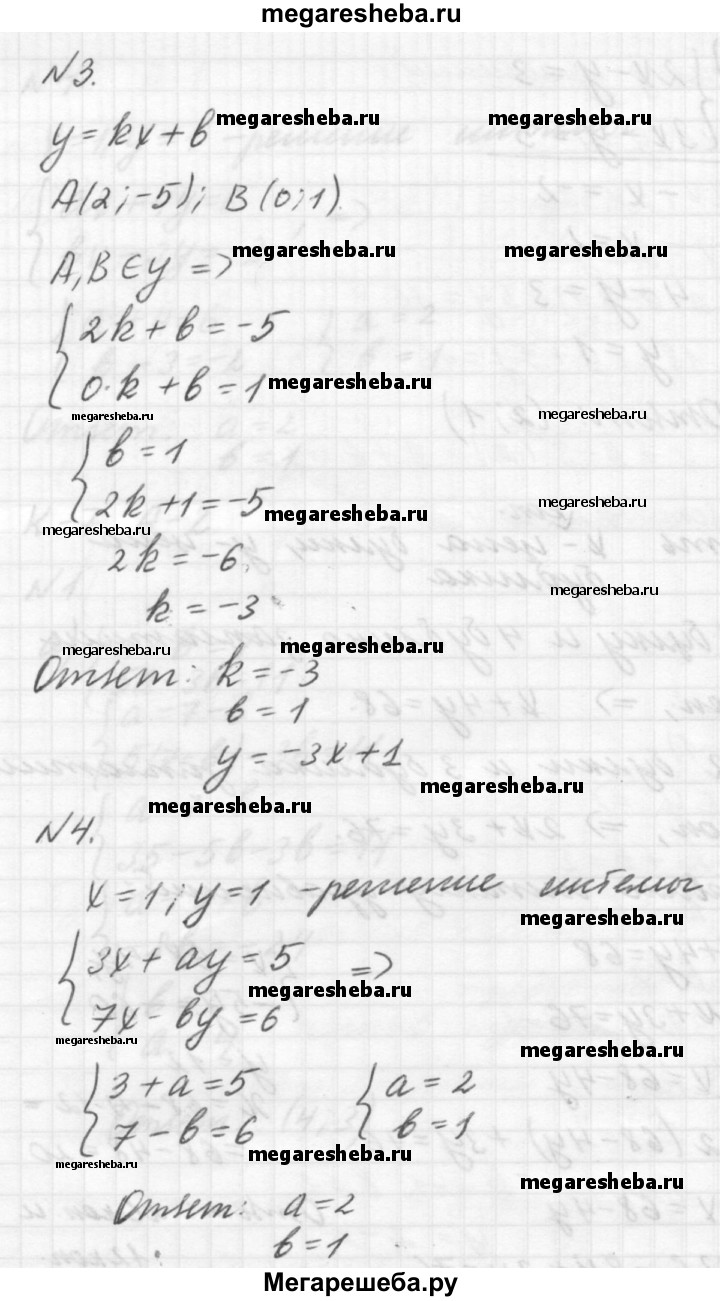 megaresheba.ru
N3.
y = kx + b megaresheba.ru megaresheba.ru
A(2; -5); B(0; 1).
A, B ∈ y => megaresheba.ru megaresheba.ru
{ 2k + b = -5
0·k + b = 1 megaresheba.ru
megaresheba.ru megaresheba.ru
{ b = 1
2k + 1 = -5 megaresheba.ru megaresheba.ru
megaresheba.ru
2k = -6
megaresheba.ru
k = -3
megaresheba.ru megaresheba.ru
Ответ: k = -3
b = 1
y = -3x + 1
megaresheba.ru megaresheba.ru
N4.
x = 1; y = 1 - решение системы
megaresheba.ru
{ 3x + ay = 5 =>
megaresheba.ru
7x - by = 6
megaresheba.ru megaresheba.ru
{ 3 + a = 5 { a = 2
7 - b = 6 b = 1
megaresheba.ru megaresheba.ru
megaresheba.ru
Ответ: a = 2
b = 1
Мегарешеба.ру